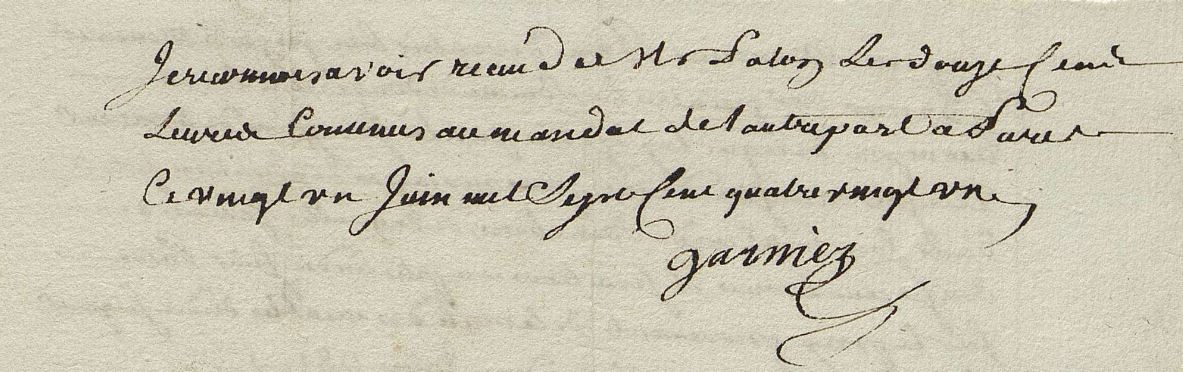 Je reconnois avoir recu de Mr Lalos Les douze Cent
Livres Contenus au mandat de l'autre part a Paris
Ce vingt un Juin mil Sept Cent quatre vingt un
garnier